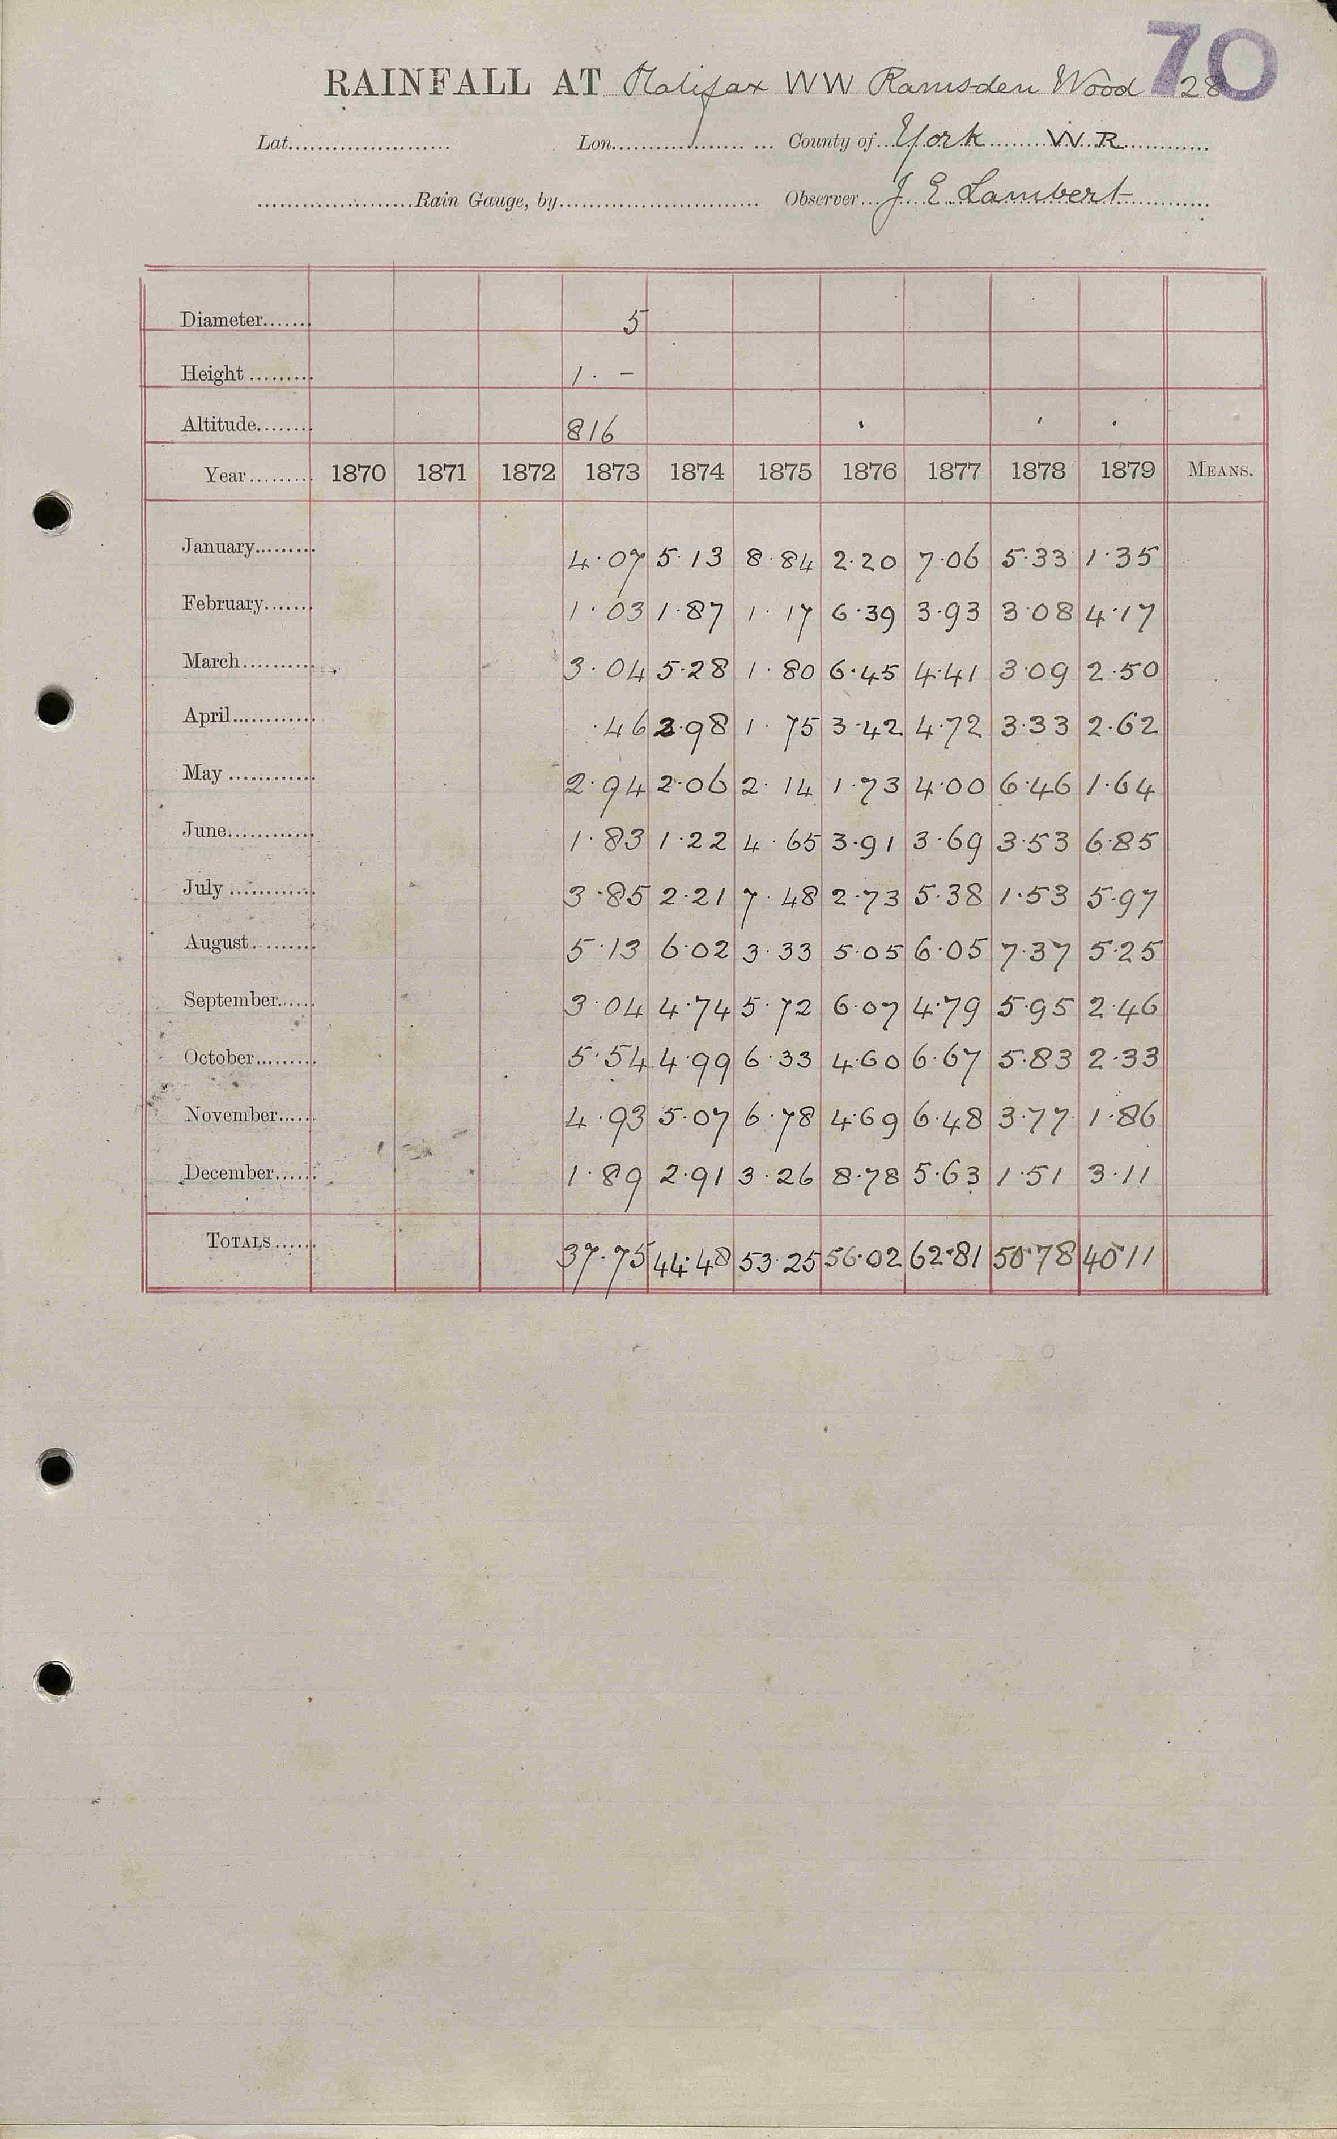 70
RAINFALL AT Halifax WW Ramsden Wood 28
Lat..................... Lon..................... County of York W.R.
.....................Rain Gauge, by..................... Observer J E Lambert
Diameter....... 5
Height......... 1 . -
Altitude........ 816
Year......... 1870 1871 1872 1873 1874 1875 1876 1877 1878 1879 MEANS.
January......... 4.07 5.13 8.84 2.20 7.06 5.33 1.35
February....... 1.03 1.87 1.17 6.39 3.93 3.08 4.17
March........... 3.04 5.28 1.80 6.45 4.41 3.09 2.50
April............ .46 2.98 1.75 3.42 4.72 3.33 2.62
May............ 2.94 2.06 2.14 1.73 4.00 6.46 1.64
June............ 1.83 1.22 4.65 3.91 3.69 3.53 6.85
July............ 3.85 2.21 7.48 2.73 5.38 1.53 5.97
August......... 5.13 6.02 3.33 5.05 6.05 7.37 5.25
September...... 3.04 4.74 5.72 6.07 4.79 5.95 2.46
October......... 5.54 4.99 6.33 4.60 6.67 5.83 2.33
November...... 4.93 5.07 6.78 4.69 6.48 3.77 1.86
December...... 1.89 2.91 3.26 8.78 5.63 1.51 3.11
TOTALS...... 37.75 44.48 53.25 56.02 62.81 50.78 40.11